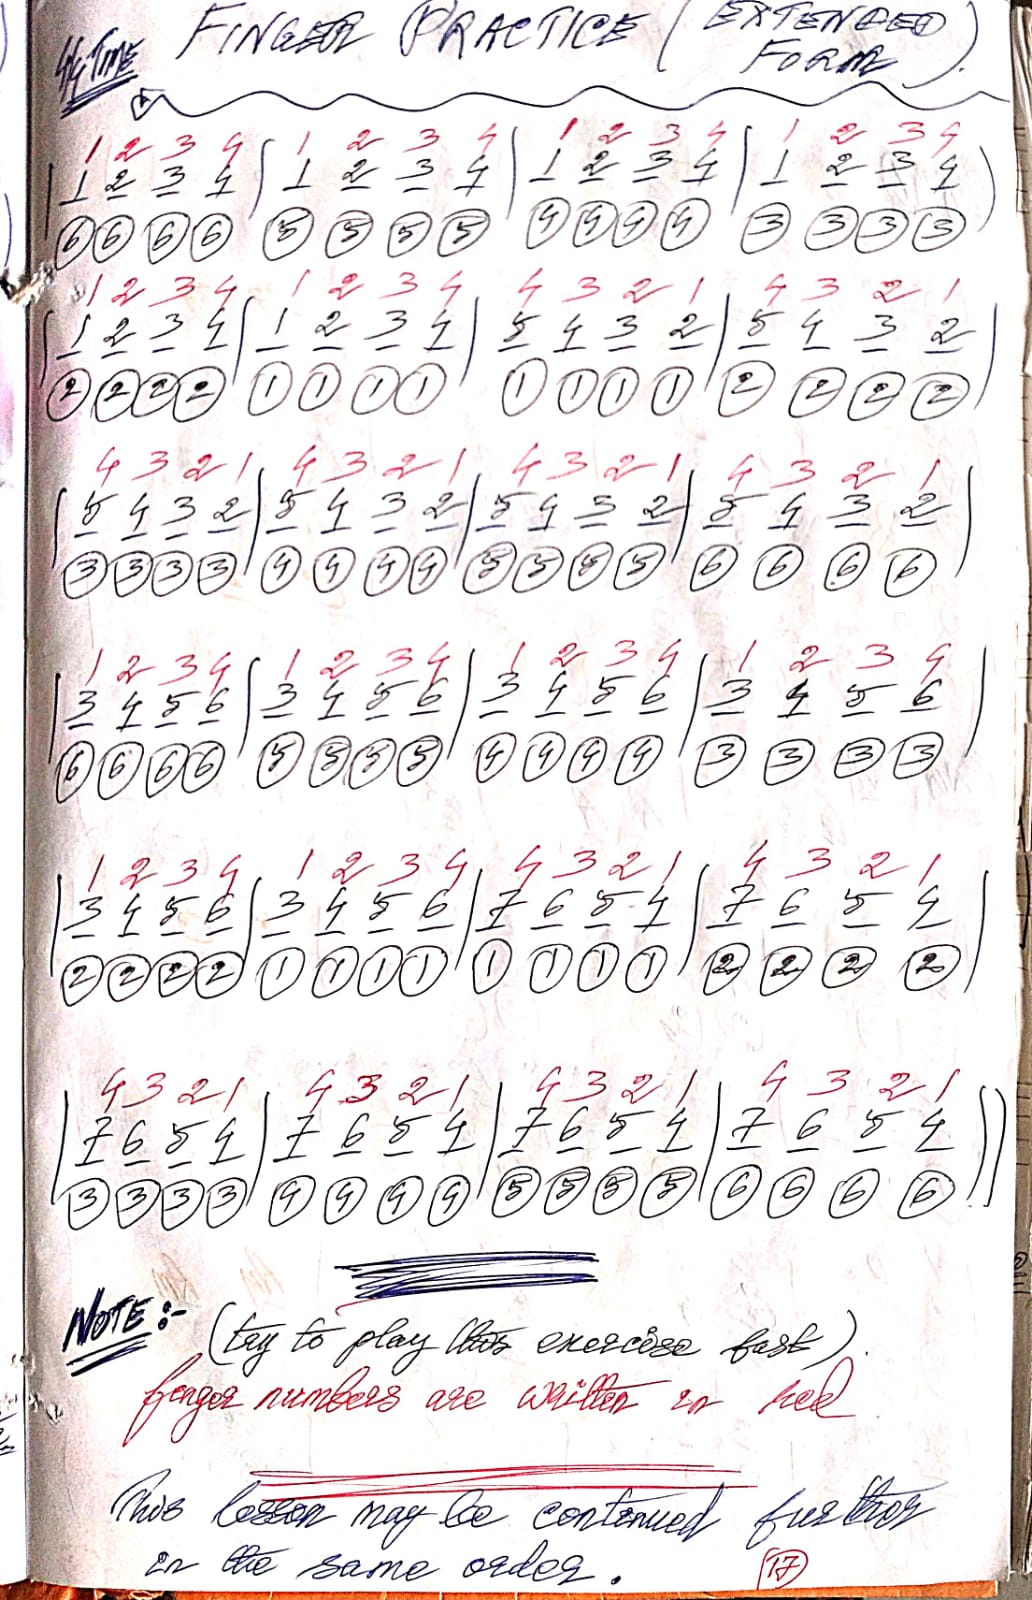 4/4 TIME FINGER PRACTICE (EXTENDED
FORM).
1 2 3 4 1 2 3 4 1 2 3 4 1 2 3 4
| 1 2 3 4 | 1 2 3 4 | 1 2 3 4 | 1 2 3 4 |
6 6 6 6 5 5 5 5 4 4 4 4 3 3 3 3
1 2 3 4 1 2 3 4 4 3 2 1 4 3 2 1
| 1 2 3 4 | 1 2 3 4 | 5 4 3 2 | 5 4 3 2 |
2 2 2 2 1 1 1 1 1 1 1 1 2 2 2 2
4 3 2 1 4 3 2 1 4 3 2 1 4 3 2 1
| 5 4 3 2 | 5 4 3 2 | 5 4 3 2 | 5 4 3 2 |
3 3 3 3 4 4 4 4 5 5 5 5 6 6 6 6
1 2 3 4 1 2 3 4 1 2 3 4 1 2 3 4
| 3 4 5 6 | 3 4 5 6 | 3 4 5 6 | 3 4 5 6 |
6 6 6 6 5 5 5 5 4 4 4 4 3 3 3 3
1 2 3 4 1 2 3 4 4 3 2 1 4 3 2 1
| 3 4 5 6 | 3 4 5 6 | 7 6 5 4 | 7 6 5 4 |
2 2 2 2 1 1 1 1 1 1 1 1 2 2 2 2
4 3 2 1 4 3 2 1 4 3 2 1 4 3 2 1
| 7 6 5 4 | 7 6 5 4 | 7 6 5 4 | 7 6 5 4 ||
3 3 3 3 4 4 4 4 5 5 5 5 6 6 6 6
NOTE:- (try to play this exercise fast).
finger numbers are written in red
This lesson may be continued further
in the same order. 17